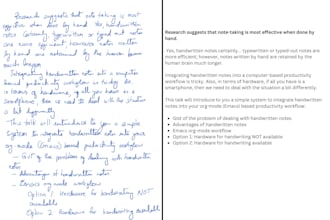 Research suggests that note taking is most
effective when done by hand. Yes, handwritten
notes. Certainly typewritten or typed-out notes
are more efficient, however notes written
by hand are retained by the human brain
much longer.
Integrating handwritten notes into a computer
based productivity workflow is tricky. Also
in terms of hardware, if all you have is a
smartphone, then we need to deal with the situation
a bit differently.
This talk will introduce to you a simple
system to integrate handwritten notes into your
org-mode (Emacs) based productivity workflow
- Gist of the problem of dealing with handwritten
notes
- Advantages of handwritten notes
- Emacs org-mode workflow
Option 1: Hardware for handwriting NOT
available
Option 2: Hardware for handwriting available
Research suggests that note-taking is most effective when done by
hand.
Yes, handwritten notes certainly... typewritten or typed-out notes are
more efficient; however, notes written by hand are retained by the
human brain much longer.
Integrating handwritten notes into a computer-based productivity
workflow is tricky. Also, in terms of hardware, if all you have is a
smartphone, then we need to deal with the situation a bit differently.
This talk will introduce to you a simple system to integrate handwritten
notes into your org-mode (Emacs) based productivity workflow:
Gist of the problem of dealing with handwritten notes
Advantages of handwritten notes
Emacs org-mode workflow
Option 1: Hardware for handwriting NOT available
Option 2: Hardware for handwriting available